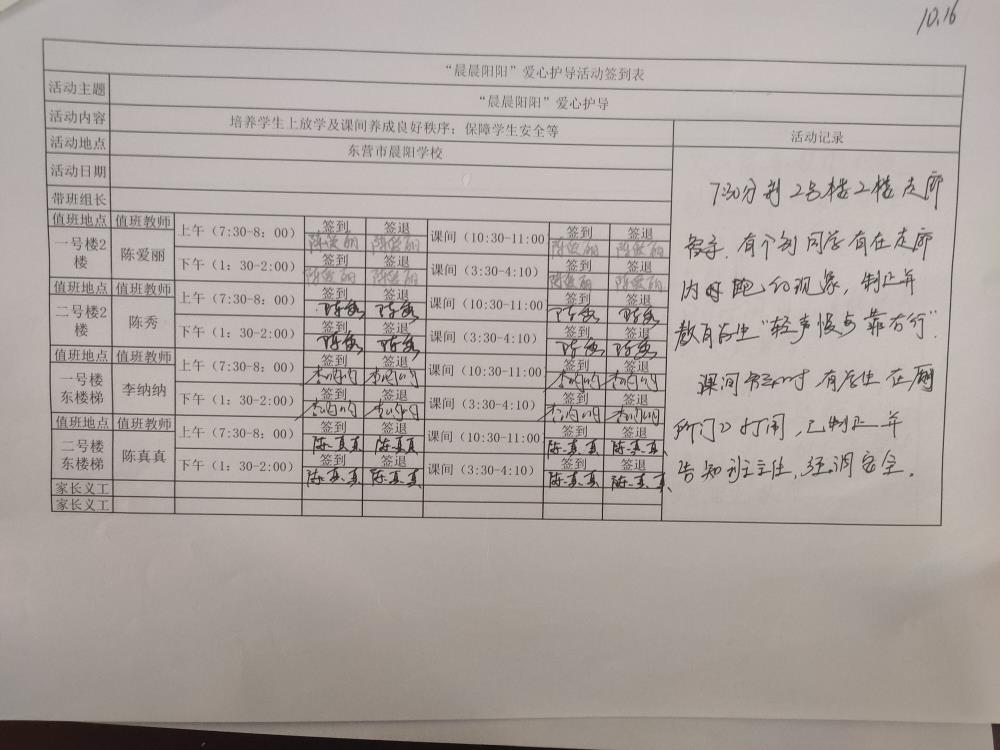 10.16
“晨晨阳阳”爱心护导活动签到表
活动主题 “晨晨阳阳”爱心护导
活动内容 培养学生上放学及课间养成良好秩序；保障学生安全等 活动记录
活动地点 东营市晨阳学校
活动日期
带班组长
值班地点 值班教师 上午（7:30-8：00） 签到 签退 课间（10:30-11:00 签到 签退
一号楼2楼 陈爱丽 陈爱丽 陈爱丽 陈爱丽 陈爱丽
下午（1：30-2:00） 签到 签退 课间（3:30-4:10） 签到 签退
陈爱丽 陈爱丽 陈爱丽 陈爱丽
值班地点 值班教师 上午（7:30-8：00） 签到 签退 课间（10:30-11:00 签到 签退
二号楼2楼 陈秀 陈秀 陈秀 陈秀 陈秀
下午（1：30-2:00） 签到 签退 课间（3:30-4:10） 签到 签退
陈秀 陈秀 陈秀 陈秀
值班地点 值班教师 上午（7:30-8：00） 签到 签退 课间（10:30-11:00 签到 签退
一号楼东楼梯 李纳纳 李纳纳 李纳纳 李纳纳 李纳纳
下午（1：30-2:00） 签到 签退 课间（3:30-4:10） 签到 签退
李纳纳 李纳纳 李纳纳 李纳纳
值班地点 值班教师 上午（7:30-8：00） 签到 签退 课间（10:30-11:00 签到 签退
二号楼东楼梯 陈真真 陈真真 陈真真 陈真真 陈真真
下午（1：30-2:00） 签到 签退 课间（3:30-4:10） 签到 签退
陈真真 陈真真 陈真真 陈真真
家长义工
家长义工
7:30分到2号楼2楼走廊
有个别同学有在走廊
内跑的现象，制止并
教育学生“轻声慢步靠右行”.
课间 时 有学生在厕
所门口打闹，已制止并
告知班主任，强调安全。